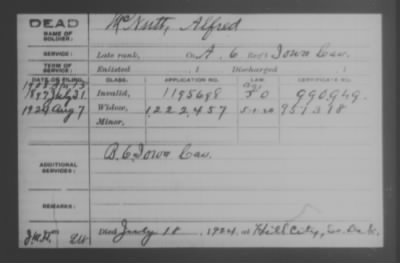 DEAD
NAME OF SOLDIER: McNutt, Alfred
SERVICE: Late rank, Co. A, 6 Reg't Iowa Cav.
TERM OF SERVICE: Enlisted , 1 Discharged , 1
DATE OF FILING. CLASS. APPLICATION NO. LAW. CERTIFICATE NO.
1897 July 31 Invalid, 1195698 990949.
1924 Aug 7 Widow, 1,222,457 5-1-20
Minor,
ADDITIONAL SERVICES: B. 6 Iowa Cav.
REMARKS:
Died July 18, 1924, at Hill City, So. Dak.